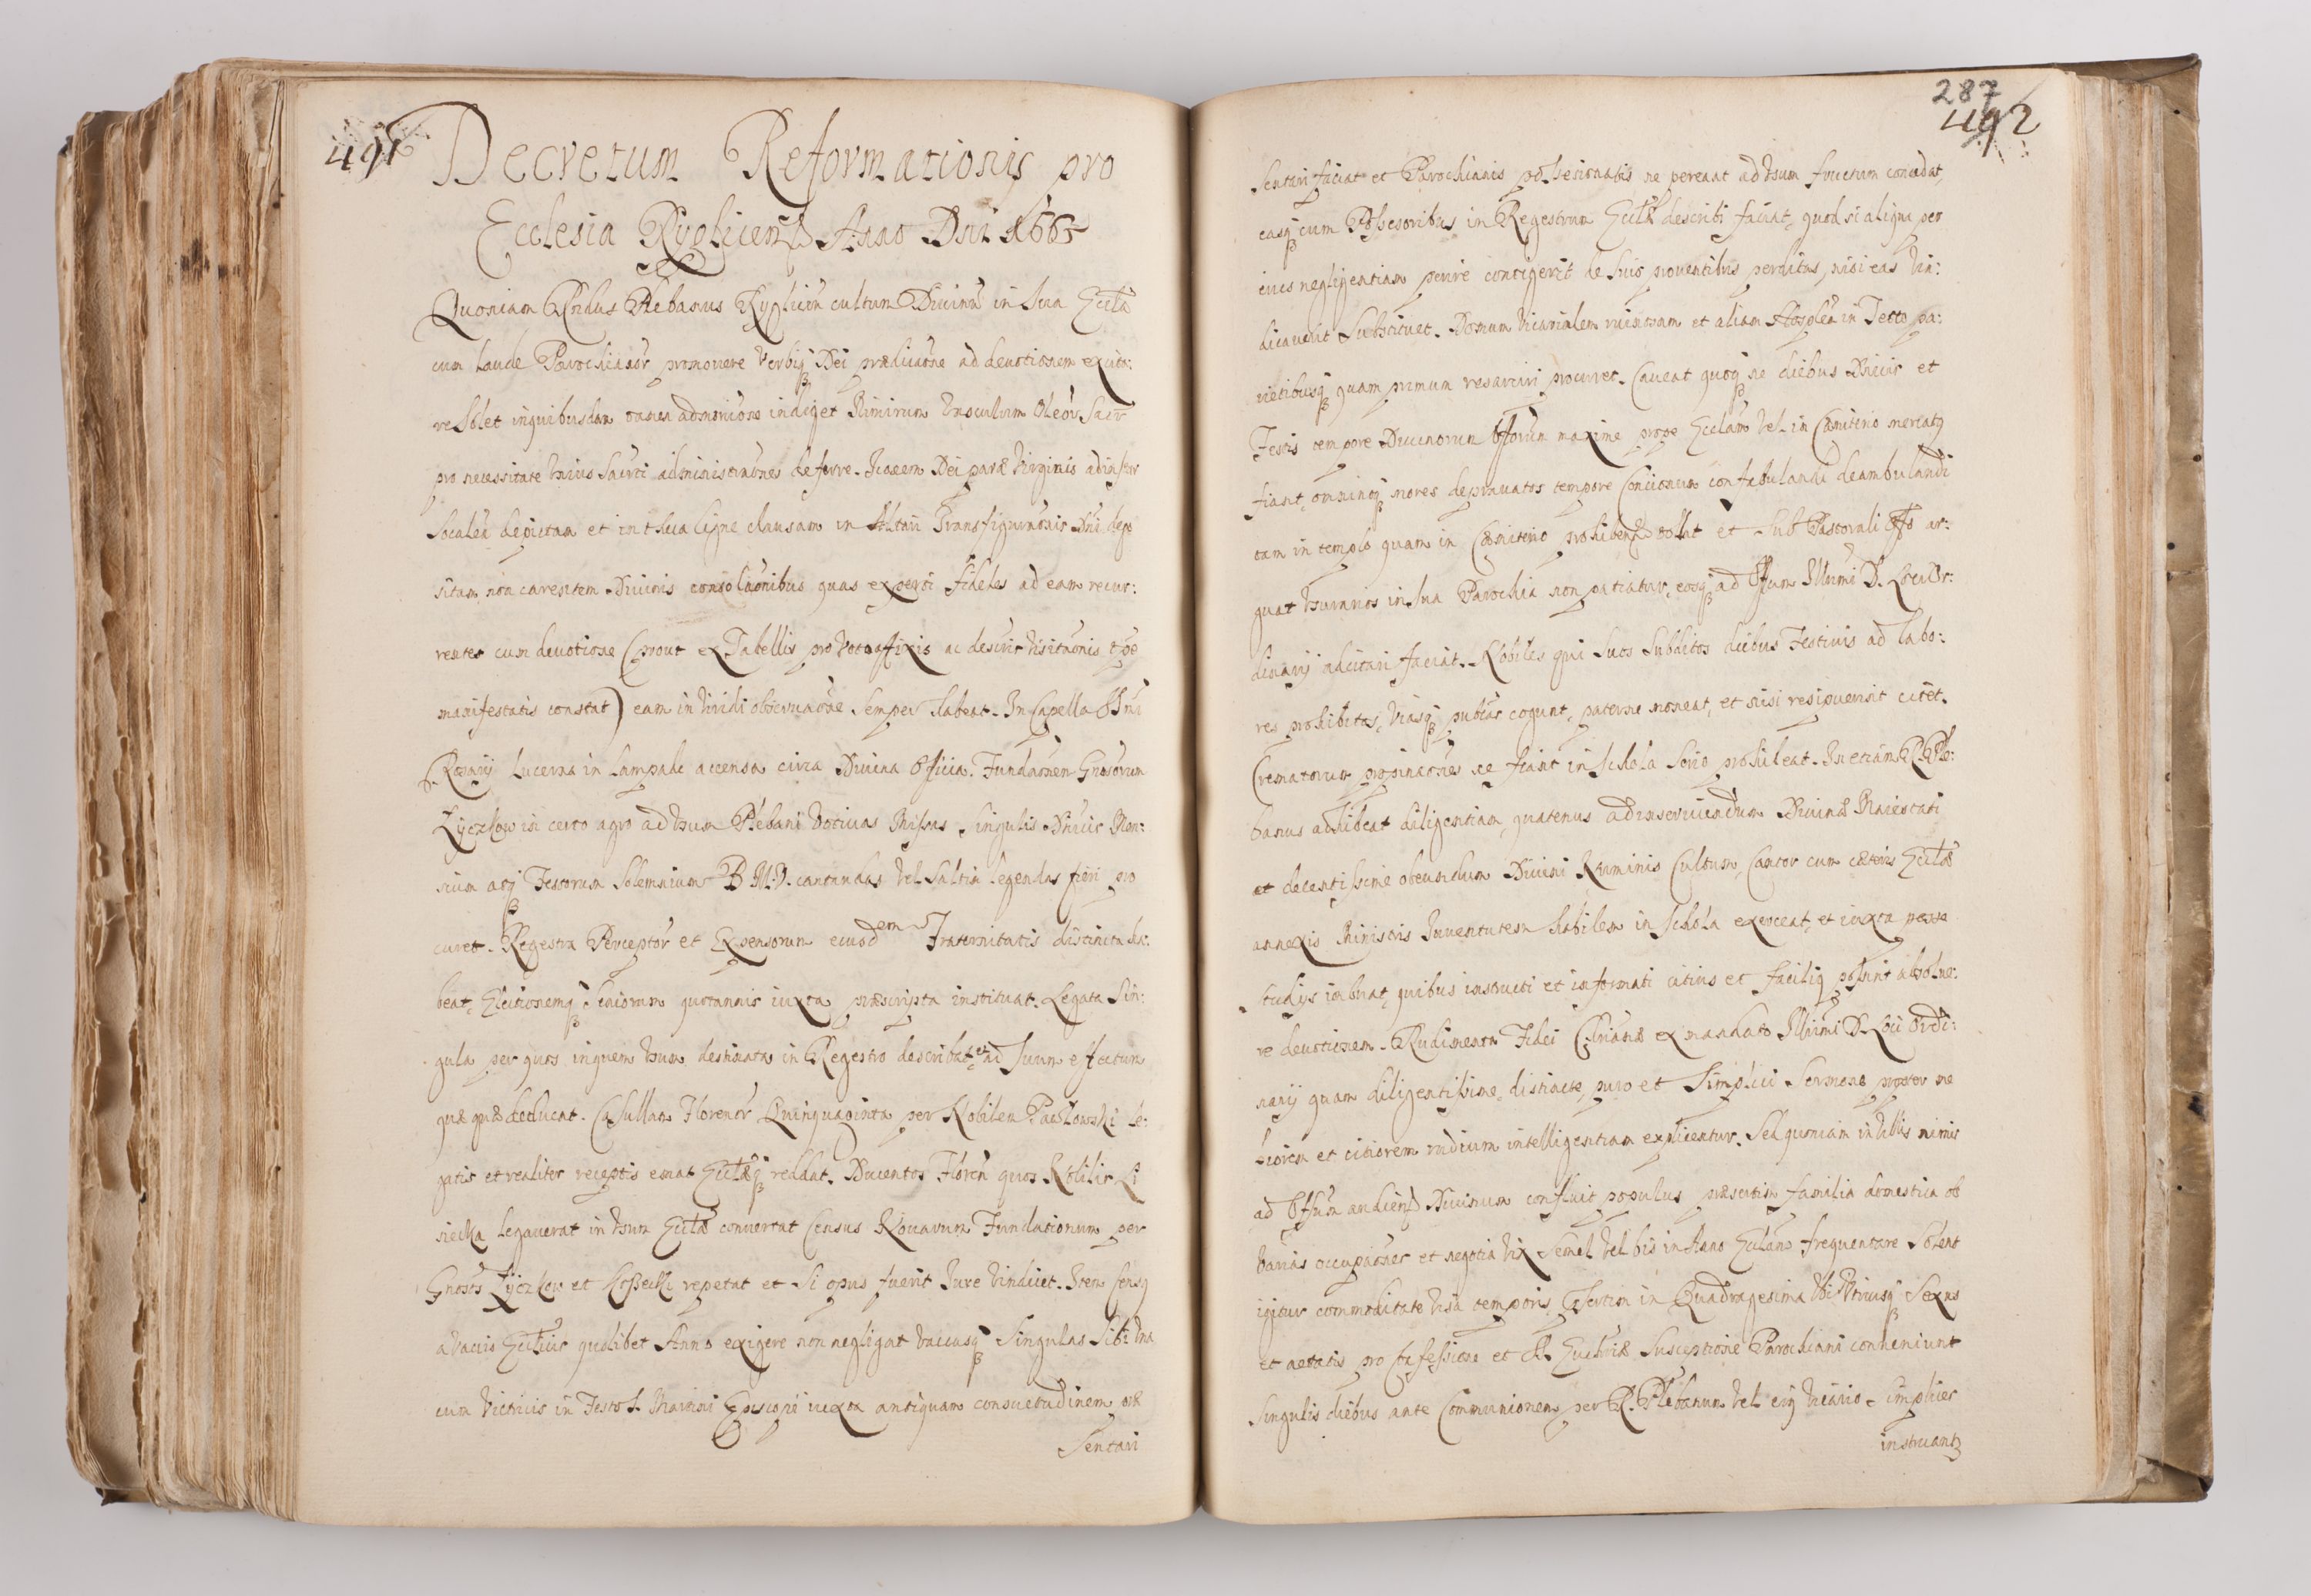 491
Decretum Reformationis pro
Ecclesia Ryglicen Anno Dni 1665
Quoniam Rndus Plebanus Ryglicen cultum Divinu in sua Eccla
cum laude Parochianor promovere Verbiq Dei prædicaone ad devotionem excita:
re solet in quibusdam tamen admonitione indiget Nimirum Vasculum Oleor Sacr
pro necessitate huius Sacrti administraones deferre. Iconem Dei paræ Virginis ad instar
Socalen depictam et in thuca ligne clausam in Altari Transfiguraonis Dni depo
sitam non carentem Divinis consolaonibus quas experti fideles ad eam recur:
rentes cum devotione (prout ex Tabellis pro voto affixis ac descrir Visitaonis tpe
manifestatis constat) eam in viridi observaone semper habeat. In Capella SSmi
Rosarij lucerna in lampade accensa circa Divina Officia. Fundaonem Gnosorum
Łyczkow in certo agro ad usum Plebani Votivas Missas singulis Dnicis Men:
sium atq Festorum Solemnium B M. V. cantandas vel saltim legendas fieri pro
curet. Regestra Perceptor et Expensorum eiusdem Fraternitatis distincta ha:
beat, Electionemq Seniorum quotannis iuxta præscripta instituat. Legata sin:
gula per quos in quem usum destinata in Regestro describat et ad suum effectum
quæq deducat. Casullam Florenor Quinquaginta per Nobilem Pawłowski le:
gatis et realiter receptis emat Ecclæq reddat. Ducentos Floren quos Nobilis Li
siecka legaverat in usum Ecclæ convertat Census Novarum Fundationum per
Gnosos Łyczkow et Kossecki repetat et si opus fuerit Iure vindicet. Item Censq
a vaccis Ecclicis quolibet Anno exigere non negligat vaccasq singulas sibi una
cum victricis in Festo S. Martini Episcopi iuxta antiquam consuetudinem præ
sentari
287
492
sentari faciat et Parochianis possesionatis ne pereant ad usum fructum concedat,
easq cum Possesoribus in Regestrum Ecclæ describi faciat, quod si aliqua per
eius negligentiam perire contigerit de suis proventibus perditas, nisi eas vin:
dicaverit substituet. Domum Vicarialem ruinosam et aliam Hosplem in Tecto pa:
rietibusq quam primum resarciri procurret. Caveat quoq ne diebus Dnicis et
Festis tempore Divinorum Offorum maxime prope Ecclam vel in Cœmiterio mercatq
fiant, omninoq mores depravatos tempore Concionum confabulandi deambulandi
tam in templo quam in Cœmiterio prohibens tollat et sub Pastorali Offo ar:
guat Usurarios in sua Parochia non patiatur, eosq ad Offum Illmi D. Loci Or:
dinarij adcitari faciat. Nobiles qui suos subditos diebus Festivis ad labo:
res prohibitos, Viasq publicas cogunt, paterne moneat, et nisi resipuerint citet.
Crematorum propinaones ne fiant in schola serio prohibeat. In etiam R. Ple:
banus adhibeat diligentiam, quatenus ad inserviendum Divinæ Maiestati
et decentissime obeundum Divini Numinis Cultum, Cantor cum cæteris Ecclæ
annexis Ministris Iuventutem habilem in schola exerceat, et iuxta posse
studijs imbuat, quibus instructi et informati citius et faciliq possint absolve:
re devotionem. Rudimenta Fidei Chrianæ ex mandato Illmi D. Loci Ordi:
narij quam diligentissime, distincte, puro et simplici Sermone propter me
liorem et citiorem rudium intelligentiam explicentur. Sed quoniam in Villis nimis
ad Offum audien Divinum confluit populus præsertim familia domestica ob
varias occupaones et negotia vix semel vel bis in Anno Ecclam frequentare solent
igitur commoditate visa temporis præsertim in Quadragesima ubi Utriusq Sexus
et aetatis pro Cofessione et S. Euchriæ susceptione Parochiani conveniunt
singulis diebus ante Communionem per R. Plebanum vel eiq Vicario simplicer
instruantr